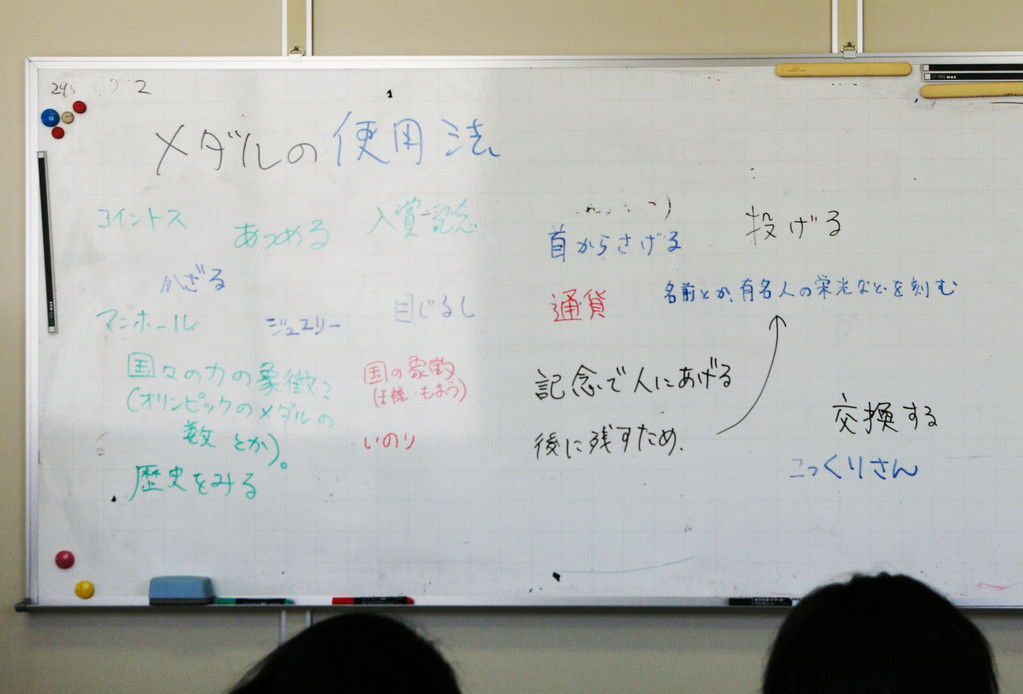 メダルの使用法
コイントス
あつめる
入賞記念
かざる
マンホール
ジュエリー
目じるし
国々の力の象徴?
(オリンピックのメダルの
数とか)。
歴史をみる
国の象徴
(王様・もよう)
いのり
首からさげる
投げる
通貨
名前とか、有名人の栄光などを刻む
記念で人にあげる
後に残すため.
交換する
こっくりさん